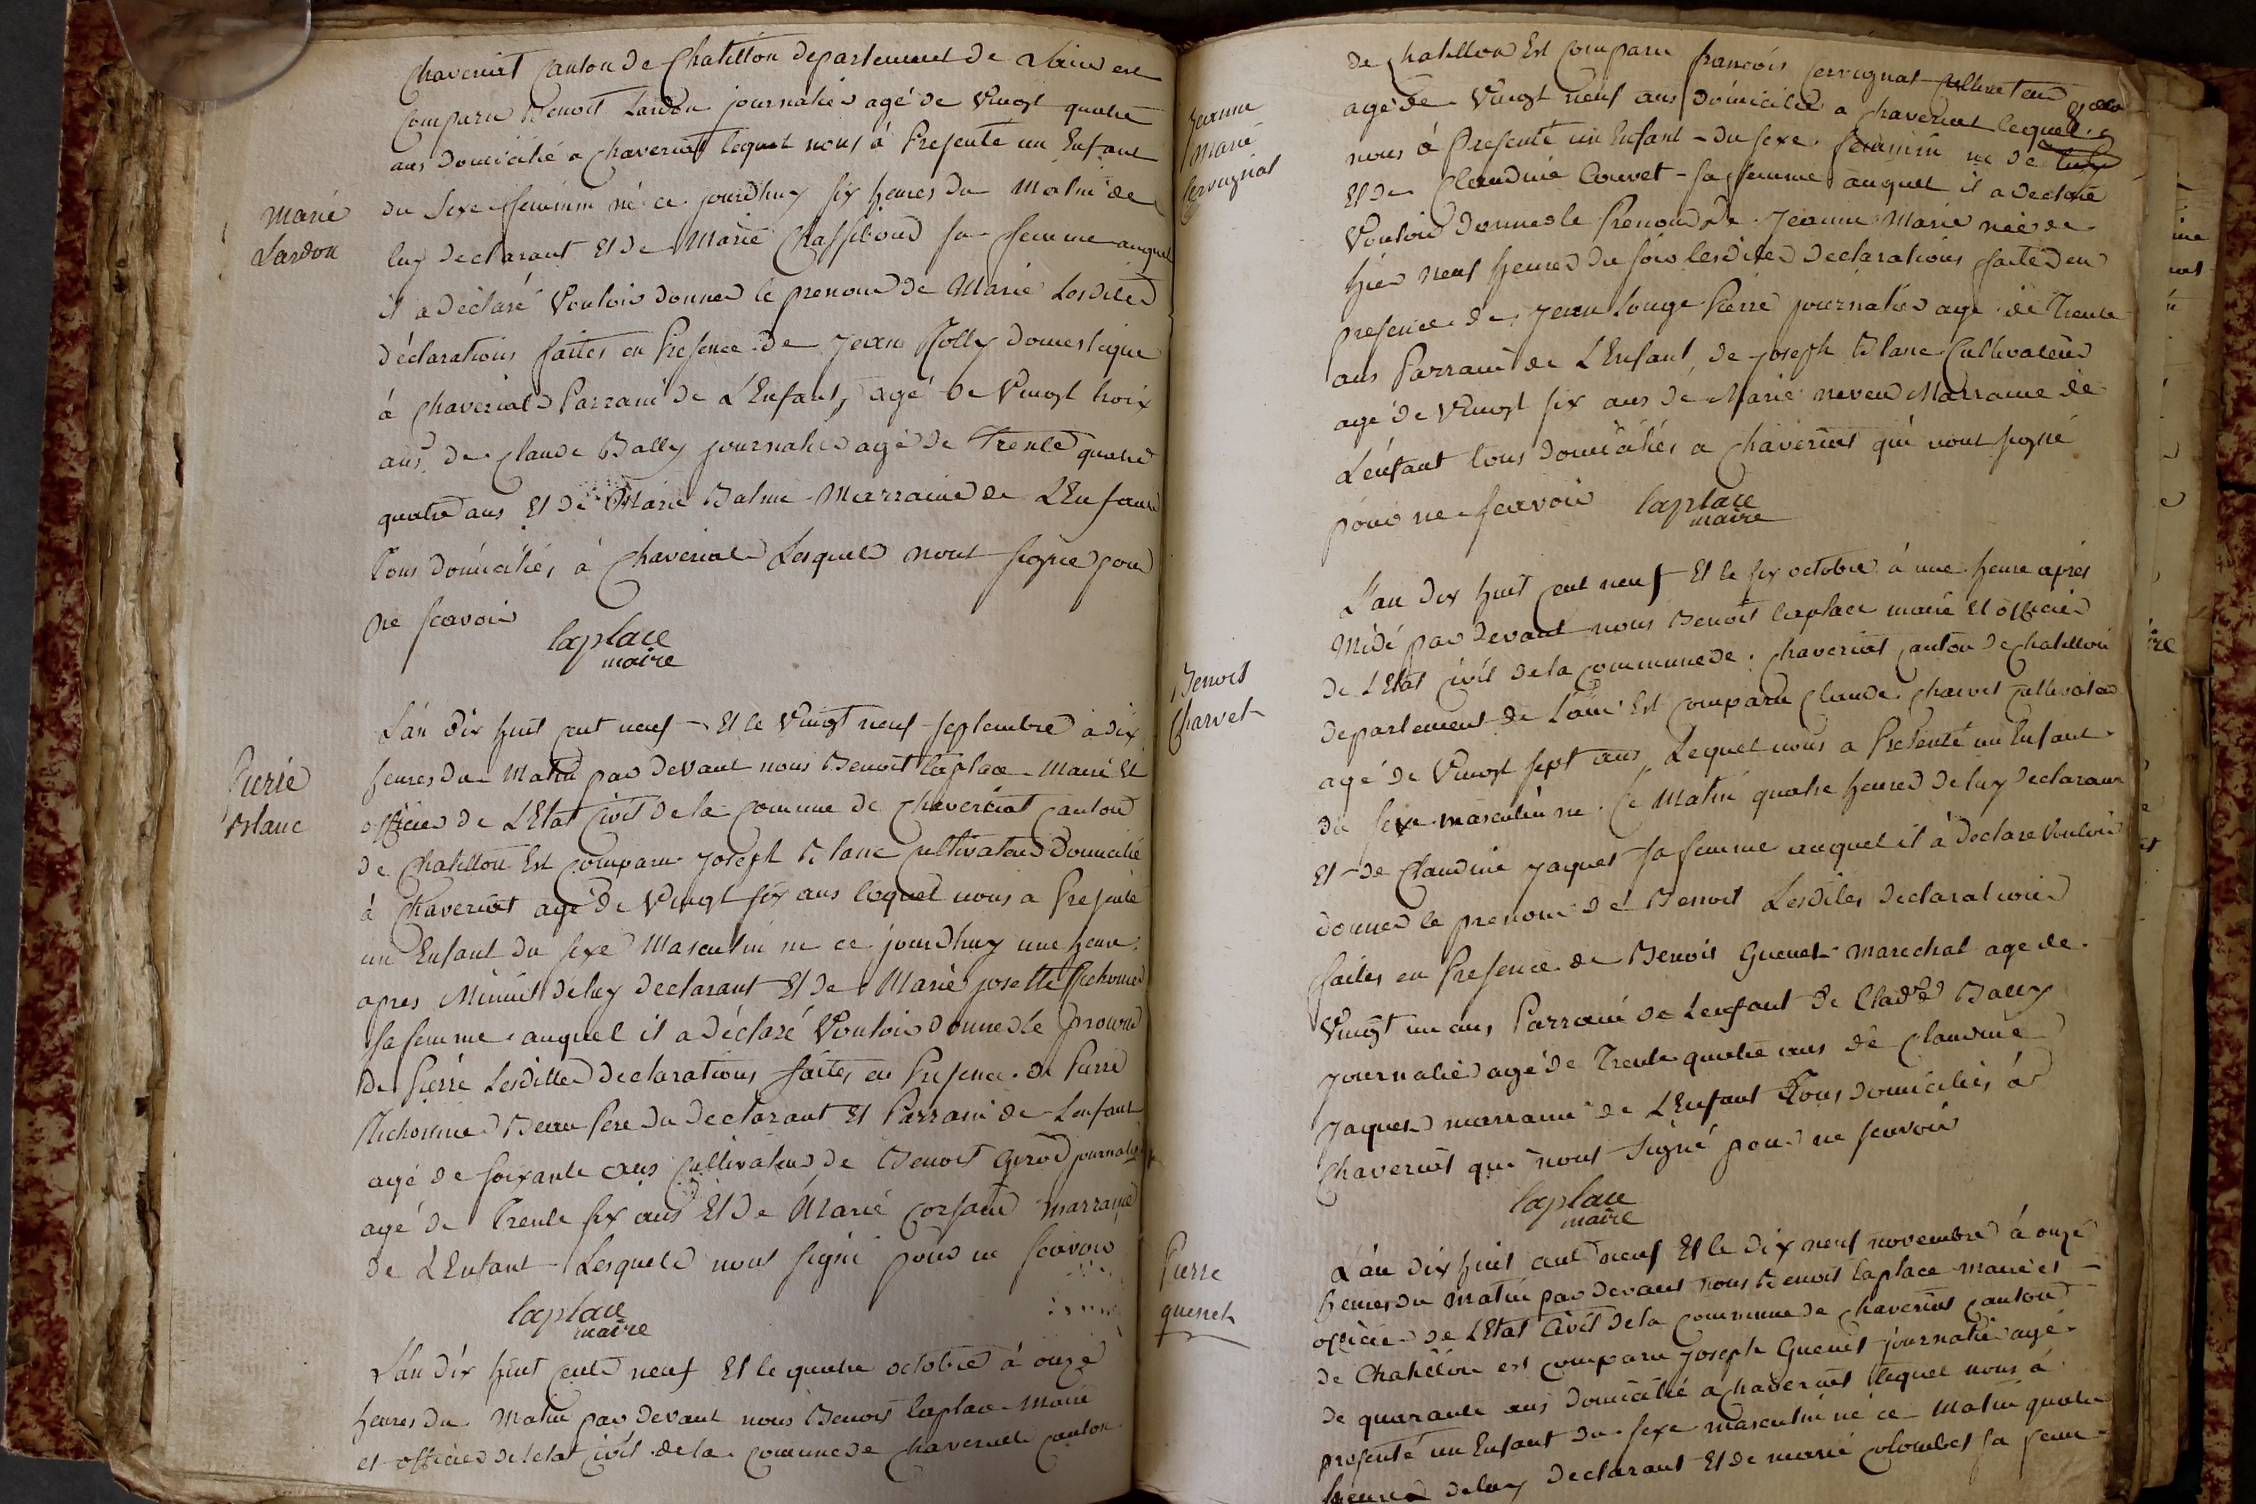 Chaveriat Canton de Chatillon departement de Lain est
Comparu Benoit Lardon journalier agé de Vingt quatre
ans domicilié a Chaveriat lequel nous à Presenté un Enfant
Marie
Lardon
du Sexe feminin né ce jourdhuy six heures du Matin de
luy declarant Et de Marie Chassiboud sa femme auquel
il a déclaré Vouloir donner le prenom de Marie Lesdites
déclarations faites en Presence de Jean Rolly domestique
à Chaveriat Parrain de L'Enfant, agé de Vingt trois
ans, de Claude Bally journalier agé de Trente quatre
quatre ans Et de Marie Balme Marraine de L'Enfant
Tous domiciliés à Chaveriat Lesquels nont signé pour
ne scavoir
laplace
maire
Pierre
Blanc
L'an dix huit cent neuf Et le Vingt neuf septembre à dix
heures du Matin par devant nous Benoit laplace Maire Et
officier de L'Etat Civil de la Commune de Chaveriat Canton
de Chatillon Est comparu Joseph Blanc Cultivateur Domicilié
à Chaveriat agé de Vingt six ans lequel nous a Presenté
un Enfant du sexe Masculin né ce jourdhuy une heure
apres Minuit de luy declarant Et de Marie josette Pichonier
sa femme auquel il a déclaré Vouloir donner le prenom
de Pierre Lesdittes declarations faites en Presence de Pierre
Pichonier Beau Pere du declarant Et Parrain de Lenfant
agé de soixante ans Cultivateur, de Benoit Girod journalier
agé de Trente six ans Et de Marie Corsain marraine
de L'Enfant Lesquels nont signé pour ne scavoir
laplace
maire
L'an dix huit cent neuf Et le quatre octobre à onze
heures du Matin par devant nous Benoit laplace Maire
et officier de letat civil de la commune de Chaveriat Canton
de Chatillon Est comparu françois Cervignat Cultivateur
Jeanne
Marie
Cervignat
agé de Vingt neuf ans domicilié a Chaveriat lequel
nous à Presenté un Enfant du sexe feminin né de
Et de Claudine Couvet sa femme auquel il a declaré
Vouloir donner le Prenom de Jeanne Marie née de
hier neuf heures du soir lesdites declarations faites en
presence de Jean Louge Pierre journalier agé de Trente
ans Parrain de L'Enfant, de joseph Blanc Cultivateur
agé de Vingt six ans de Marie neveu Marraine de
L'enfant tous domiciliés a Chaveriat qui nont signé
pour ne scavoir
laplace
maire
L'an dix huit cent neuf Et le six octobre à une heure après
Midi par devant nous Benoit laplace maire Et officier
Benoit
Charvet
de L'Etat Civil de la Commune de Chaveriat Canton de Chatillon
departement de L'ain Est comparu Claude Charvet Cultivateur
agé de Vingt sept ans, Lequel nous a Presenté un Enfant
du sexe masculin né Ce Matin quatre heures de luy declarant
Et de Claudine Jaquet sa femme auquel il à declaré Vouloir
donner le prenom de Benoit Lesdites declarations
faites en Presence de Benoit Guenet marechal agé de
Vingt un ans, Parrain de Lenfant de Clad.de Bally
journalier agé de Trente quatre ans de Claudine
Jaquet marraine de L'Enfant Tous domiciliés à
Chaveriat qui nont signé pour ne scavoir
laplace
maire
Pierre
guenet
L'an dix huit cent neuf Et le dix neuf novembre à onze
heures du Matin par devant nous Benoit laplace maire et
officier de L'Etat Civil de la Commune de Chaveriat Canton
de Chatillon est comparu Joseph Guenet journalier agé
de quarante ans domicilié a Chaveriat lequel nous à
presenté un Enfant du sexe masculin né ce Matin quatre
heures de luy declarant Et de marie Colombet sa fem